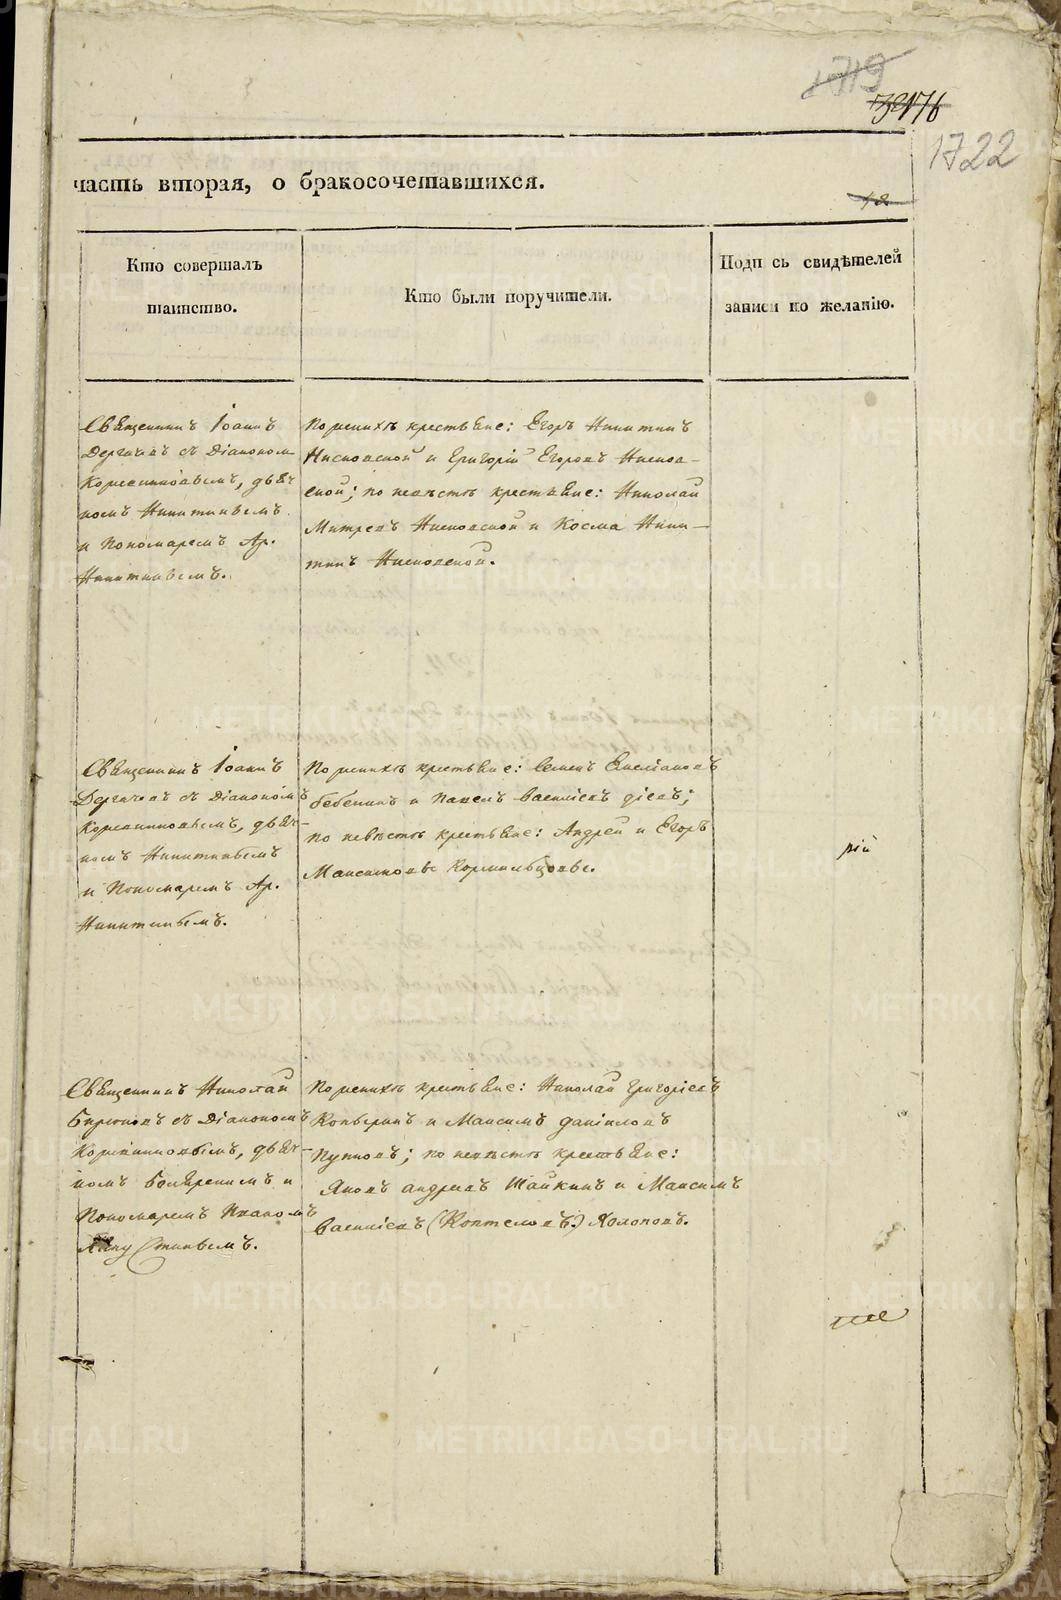 1719
1722
часть вторая, о бракосочетавшихся.
Кто совершалъ
таинство.
Кто были поручители.
Подп сь свидѣтелей
записи по желанію.
Священникъ Іоаннъ
Дергачевъ съ Діакономъ
Коровинновымъ, дьяч
комъ Никитинымъ
и Пономаремъ Ар.
Никитинымъ.
По женихѣ крестьяне: Егоръ Никитинъ
Нисковской и Григорій Егоровъ Нисков-
ской; по невѣстѣ крестьяне: Николай
Митревъ Нисковской и Косма Ники-
тинъ Нисковской.
Священникъ Іоаннъ
Дергачевъ съ Діакономъ
Коровинновымъ, дьяч-
комъ Никитинымъ
и Пономаремъ Ар.
Никитинымъ.
По женихѣ крестьяне: Семенъ Емеліановъ
Бебенинъ и Павелъ Василіевъ Діевъ;
по невѣстѣ крестьяне: Андрей и Егоръ
Максимовы Кормильцовы.
рій
Священникъ Николай
Бирюковъ съ Діакономъ
Коровинновымъ, дьяч-
комъ Боляренимъ и
Пономаремъ Иваномъ
По женихѣ крестьяне: Николай Григоріевъ
и Максимъ Даніиловъ
Пупковъ; по невѣстѣ крестьяне:
Яковъ Андреевъ Шайкинъ и Максимъ
Василіевъ (Коптеловъ.) Холоповъ.
METRIKI.GASO-URAL.RU